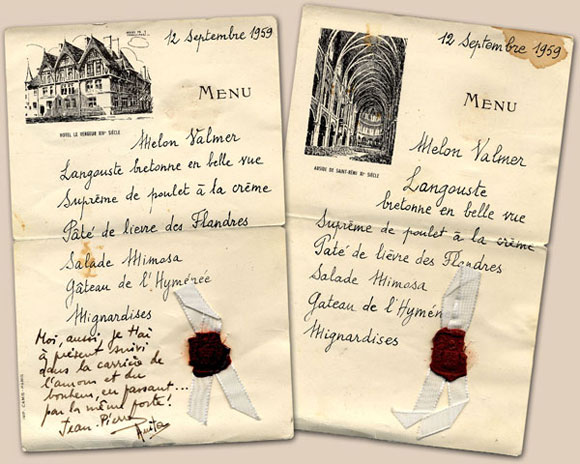 12 Septembre 1959
MENU
HOTEL LE VERGEUR XIIIe SIÈCLE
Melon Valmer
Langouste bretonne en belle vue
Suprême de poulet à la crème
Pâté de lièvre des Flandres
Salade Mimosa
Gâteau de l'Hyménée
Mignardises
Moi, aussi, je t'ai
à présent suivi
dans la carrière de
l'amour et du
bonheur, en passant...
par la même porte!
Jean-Pierre
Anita
12 Septembre 1959
MENU
ABSIDE DE SAINT-REMI XIe SIÈCLE
Melon Valmer
Langouste
bretonne en belle vue
Suprême de poulet à la crème
Pâté de lièvre des Flandres
Salade Mimosa
Gateau de l'Hymén
Mignardises